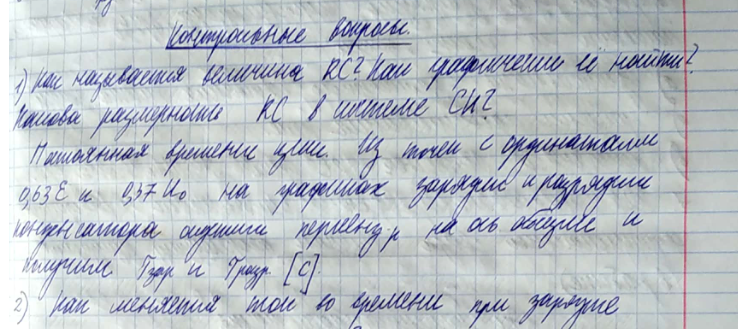 Контрольные вопросы.
1) Как называется величина RC? Как графически её найти?
Какова размерность RC в системе СИ?
Постоянная времени цепи. Из точек с ординатами
0,63ℰ и 0,37U₀ на графиках зарядки и разрядки
конденсатора опустили перпенд р на ось абсцисс и
получим Tзар и Tразр [с].
2) Как меняется ток во времени при зарядке